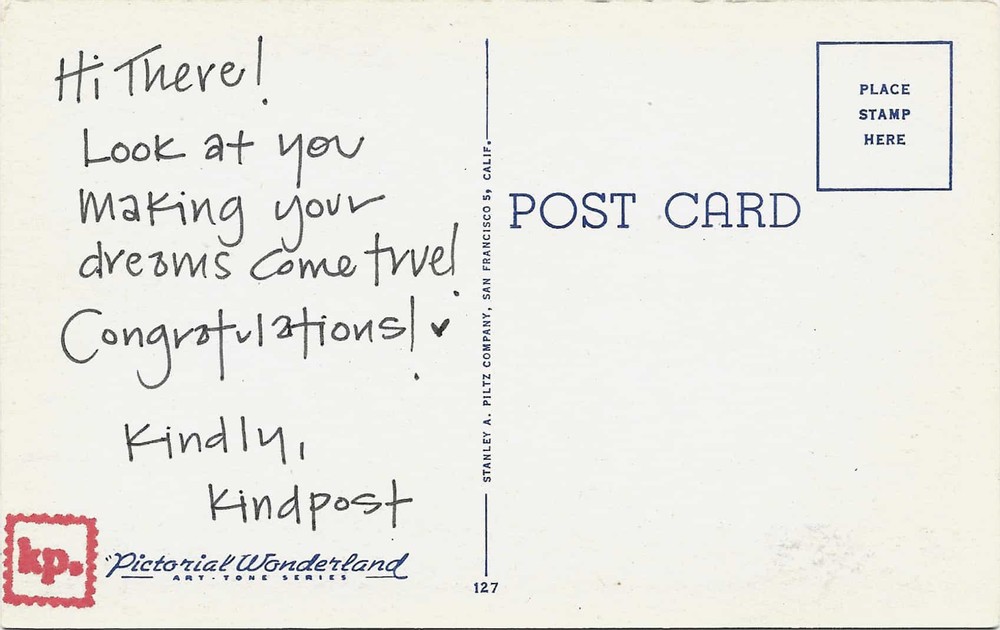 Hi There!
Look at you
making your
dreams come true!
Congratulations! ♥
Kindly,
Kindpost
kp.
"Pictorial Wonderland"
ART-TONE SERIES
STANLEY A. PILTZ COMPANY, SAN FRANCISCO 5, CALIF.
127
POST CARD
PLACE
STAMP
HERE